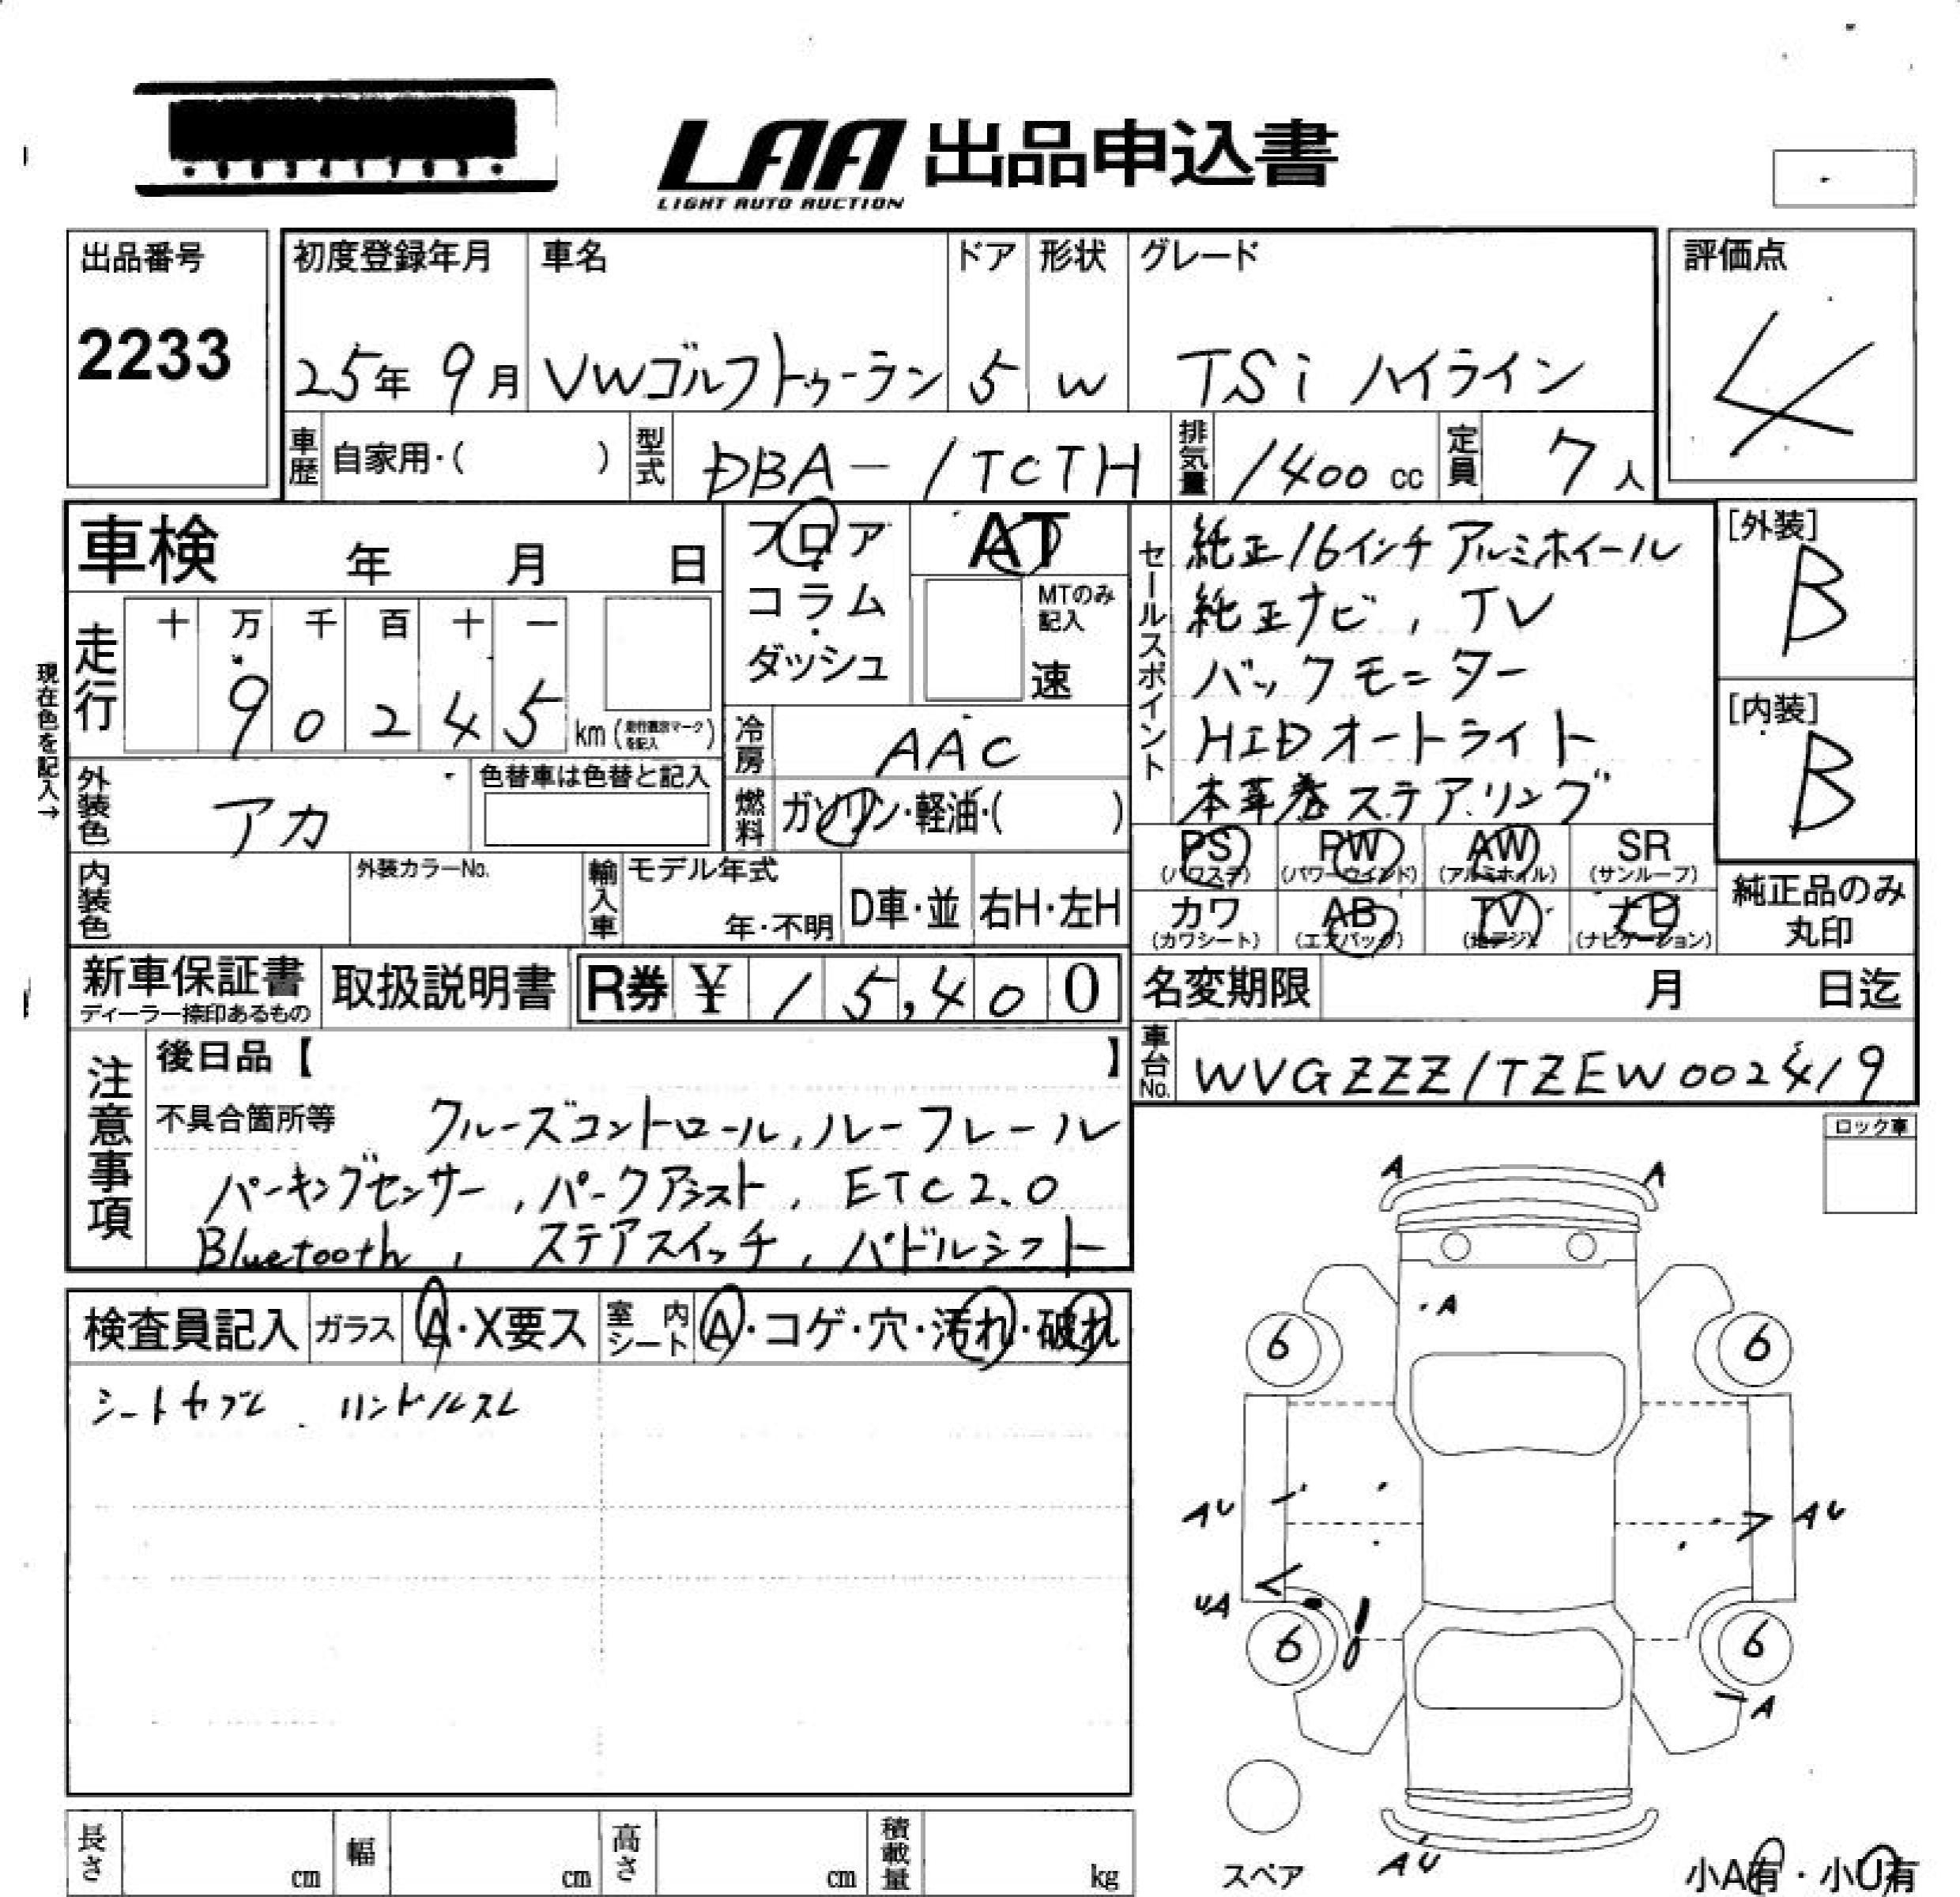 LAA 出品申込書
LIGHT AUTO AUCTION
出品番号
2233
初度登録年月 車名 ドア 形状 グレード
25年 9月 VWゴルフトゥーラン 5 W TSi ハイライン
評価点
4
車歴 自家用・( ) 型式 DBA-1TCTH 排気量 1400 cc 定員 7人
車検 年 月 日
フロア・コラム・ダッシュ
AT
MTのみ記入
速
走行 十 万 千 百 十 一
9 0 2 4 5 km
現在色を記入→
冷房 AAC
外装色 アカ 色替車は色替と記入
燃料 ガソリン・軽油・( )
内装色 外装カラーNo. 輸入車 モデル年式 年・不明 D車・並 右H・左H
セールスポイント
純正16インチ アルミホイール
純正ナビ, TV
バックモニター
HIDオートライト
本革巻ステアリング
[外装]
B
[内装]
B
PS PW AW SR
(パワステ) (パワーウインド) (アルミホイル) (サンルーフ)
カワ AB TV ナビ
(カワシート) (エアバック) (地デジ) (ナビゲーション)
純正品のみ
丸印
新車保証書 取扱説明書 R券 ¥ 15,400
ディーラー捺印あるもの
名変期限 月 日迄
車台No. WVGZZZ1TZEW002419
注意事項
後日品【 】
不具合箇所等 クルーズコントロール, ルーフレール
パーキングセンサー, パークアシスト, ETC2.0
Bluetooth, ステアスイッチ, パドルシフト
ロック車
検査員記入 ガラス A・X要ス 室内シート A・コゲ・穴・汚れ・破れ
シートヤブレ ハンドルスレ
A A
A
6 6
AU AU
UA
6 6
A
AU
スペア
小A有・小U有
長さ cm 幅 cm 高さ cm 積載量 kg